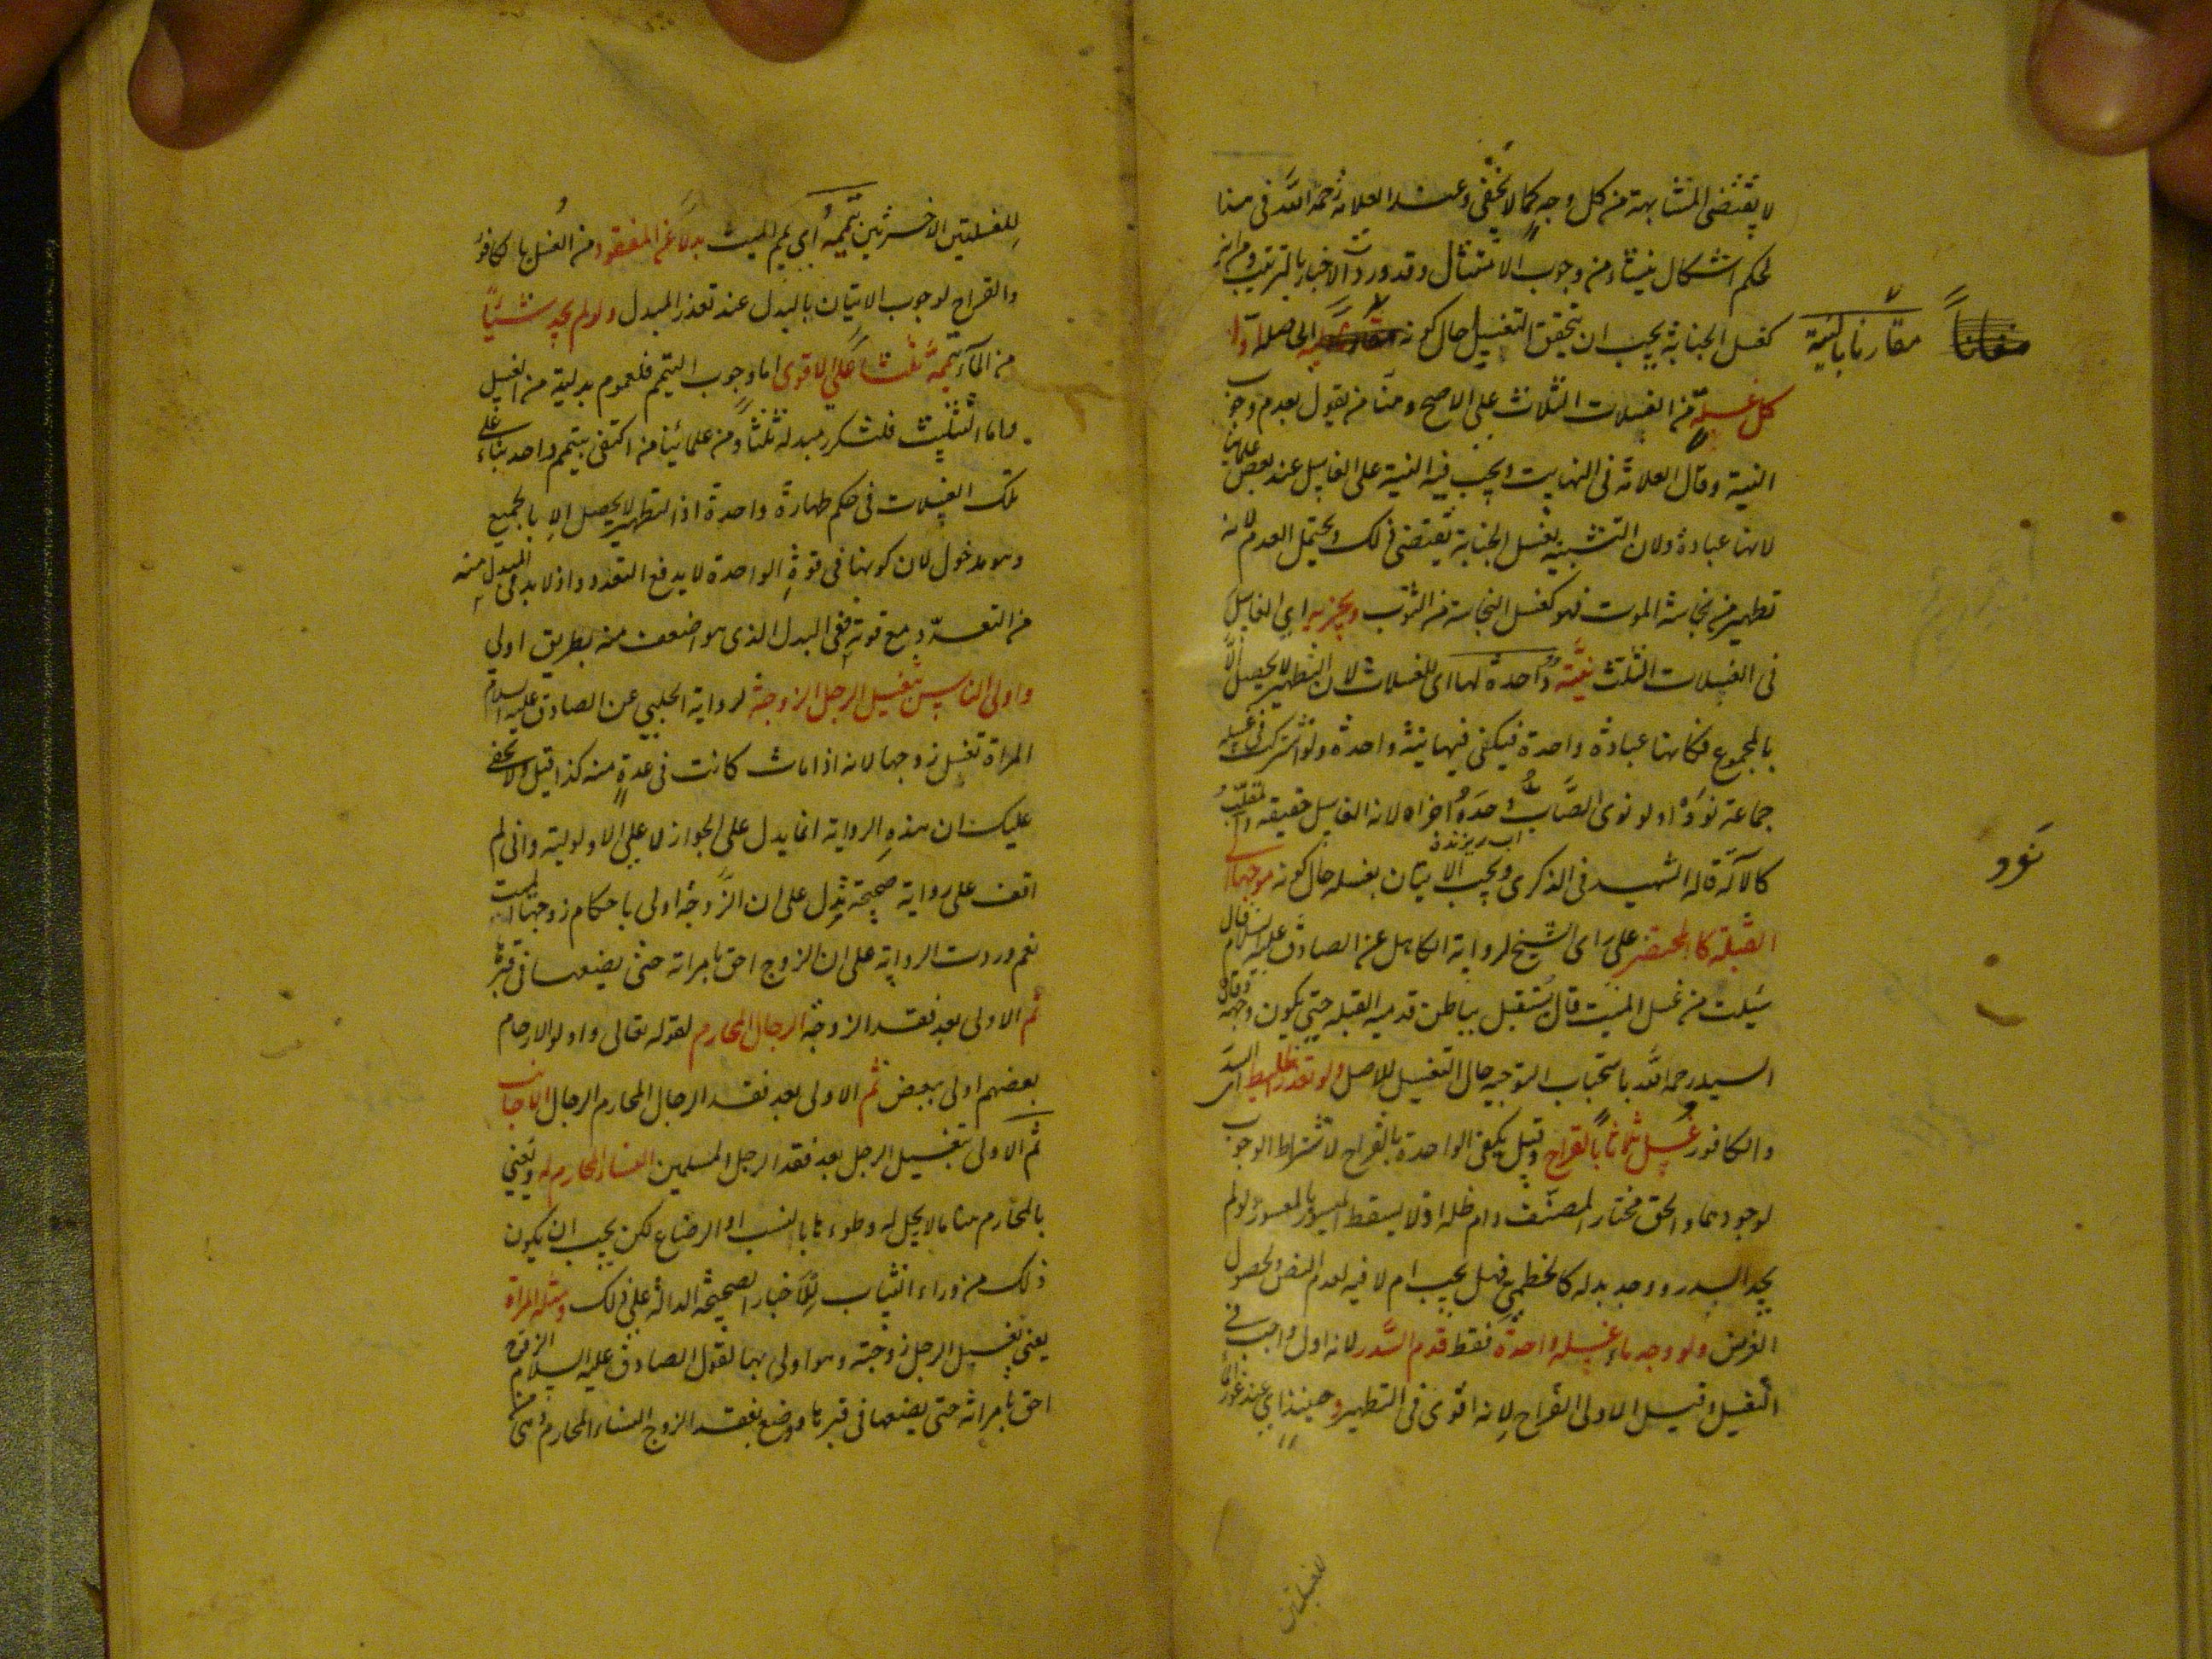 لا يقتضى المشابهة من كل وجه كما لا يخفى وعند العلامة رحمه الله فى هذا
لحكم اشكال ينشاء من وجوب الامتثال وقد وردت الاخبار بالترتيب ومن انه
كغسل الجنابة يجب ان يتحقق التغسيل حال كونه الحاصلة اول
مقارنا بالنية
كل غسلة من الغسلات الثلاث على الاصح ومنا من يقول بعدم وجوب
النية وقال العلامة فى النهاية ويجب فيه النية على الغاسل عند بعض علمائنا
لانها عبادة ولان التشبيه بغسل الجنابة يقتضى ذلك ويحتمل العدم لانه
تطهير من نجاسة الموت فهو كغسل النجاسة من الثوب ويجزيه اى الغاسل
فى الغسلات الثلث نية واحدة لها اى للغسلات لان التطهير لا يحصل الا
بالمجموع فكانها عبادة واحدة فيكفى فيها نية واحدة ولو اشترك فى غسله
جماعة نووا ولو نوى الصاب وحده اجزاه لانه الغاسل حقيقة والمقلب
آب ريزنده
نوو
كالآلة قاله الشهيد فى الذكرى ويجب الاتيان بغسله حال كونه موجها الى
القبلة كالمحتضر على راى الشيخ لرواية الكاهلى عن الصادق عليه السلام قال
سئلت من غسل الميت قال يستقبل بباطن قدميه القبلة حتى يكون وجهه وقال
السيد رحمه الله باستحباب التوجيه حال التغسيل للاصل ولو تعذر الخليط السدر
والكافور غسل ثلاثا بالقراح وقيل يكفى الواحدة بالقراح لاشتراط الوجوب
لوجودهما والحق مختار المصنف دام ظله اذ لا يسقط الميسور بالمعسور ولو لم
يجد السدر ووجد بدله كالخطمى فهل يجب ام لا فيه لعدم النص ولحصول
الغرض ولو وجد ماء غسلة واحدة فقط قدم السدر لانه اول واجب فى
التغسيل وقيل الاولى القراح لانه اقوى فى التطهير وحينئذ اى عند عوز الماء
للغسلتين
للغسلتين الاخرتين تيممه اى ييمم الميت بدلا عن المفقود من الغسل بالكافور
والقراح لوجوب الاتيان بالبدل عند تعذر المبدل ولو لم يجد شيئا
من الماء تيممه ثلثا على الاقوى اما وجوب التيمم فلعموم بدلية من الغسل
واما التثليث فلتكرر مبدله ثلثا ومن علمائنا من اكتفى بتيمم واحد بناء على
تلك الغسلات فى حكم طهارة واحدة اذ التطهير لا يحصل الا بالجميع
وهو مدخول لان كونها فى قوة الواحدة لا يدفع التعدد واذ لا بد فى المبدل منه
من التعدد مع قوته ففى البدل الذى هو اضعف منه بطريق اولى
واولى الناس بتغسيل الرجل الزوجة لرواية الحلبى عن الصادق عليه السلام
المراة تغسل زوجها لانه اذا مات كانت فى عدة منه كذا قيل ولا يخفى
عليك ان هذه الرواية انما يدل على الجواز لا على الاولوية وانى لم
اقف على رواية صحيحة تدل على ان الزوجة اولى باحكام زوجها الميت
نعم وردت الرواية على ان الزوج احق بامراته حتى يضعها فى قبرها
ثم الاولى بعد فقد الزوجة الرجال المحارم لقوله تعالى واولو الارحام
بعضهم اولى ببعض ثم الاولى بعد فقد الرجال المحارم الرجال الاجانب
ثم الاولى بتغسيل الرجل بعد فقد الرجل المسلمين النساء المحارم له ويعنى
بالمحارم هنا ما لا يحل له وطوءها بالنسب او الرضاع لكن يجب ان يكون
ذلك من وراء الثياب للاخبار الصحيحة الدالة على ذلك ومثله المراة
يعنى يغسل الرجل زوجته وهو اولى بها لقول الصادق عليه السلام الزوج
احق بامراته حتى يضعها فى قبرها ووضع بفقد الزوج النساء المحارم